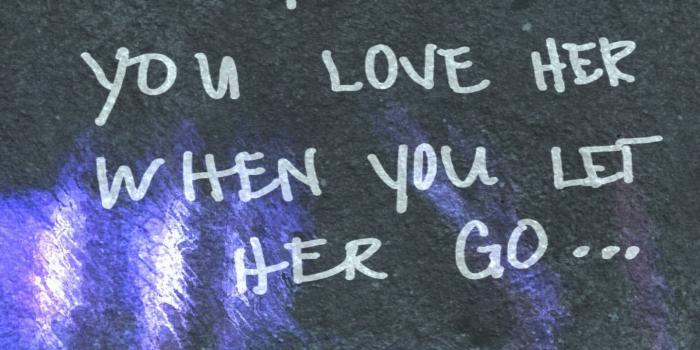 YOU LOVE HER
WHEN YOU LET
HER GO...